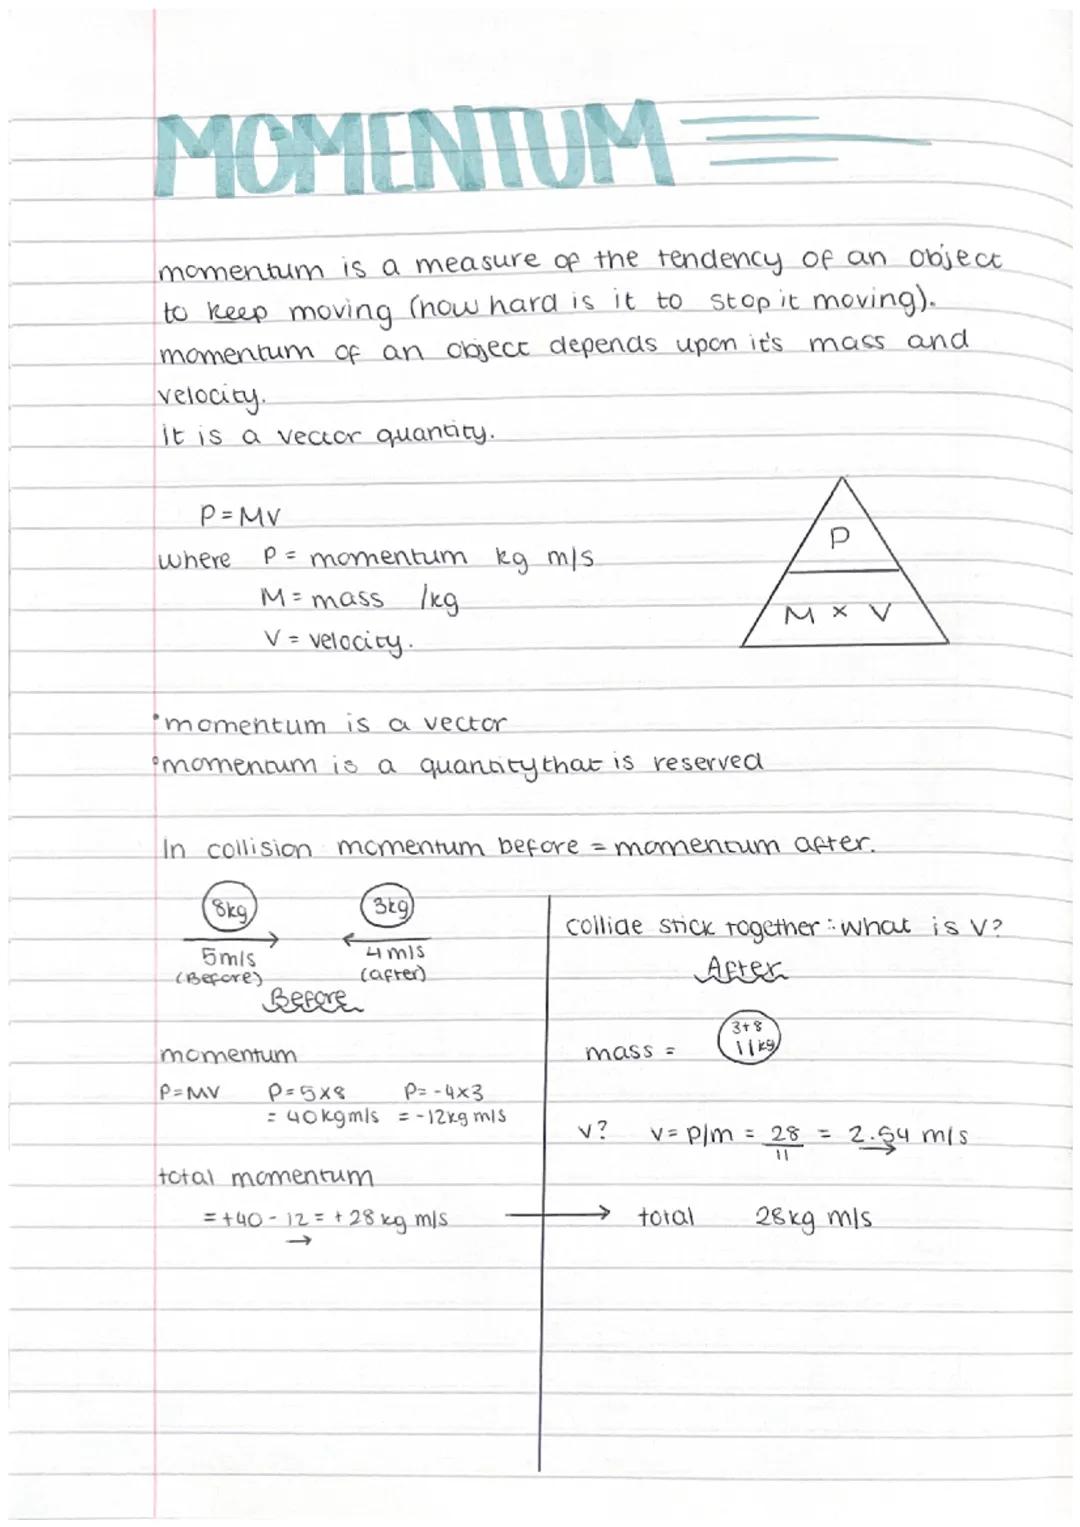 MOMENTUM
momentum is a measure of the tendency of an object
to keep moving (how hard is it to stop it moving).
momentum of an object depends upon it's mass and
velocity.
it is a vector quantity.
P = MV
where P = momentum kg m/s
M = mass /kg
V = velocity.
P
M × V
•momentum is a vector
•momentum is a quantity that is reserved
In collision momentum before = momentum after.
8kg 3kg
5m/s 4m/s
(Before) (after)
Before
momentum
P=MV P=5×8 P= -4×3
= 40kgm/s = -12kg m/s
total momentum
= +40 - 12 = +28 kg m/s
→
collide stick together ∴ what is V?
After
mass = 3+8
11kg
v? v= p/m = 28 = 2.54 m/s
11 →
→ total 28kg m/s